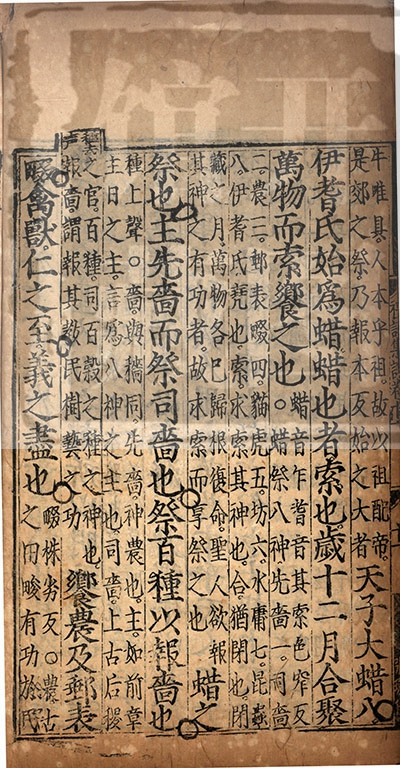 牛唯具。人本乎祖。故以祖配帝。
是郊之祭乃報本反始之大者
天子大蜡八
伊耆氏始爲蜡蜡也者索也。歲十二月合聚
萬物而索饗之也。
蜡音乍耆音其索色窄反
蜡祭八神先嗇一。司嗇
二。農三。郵表畷四。貓虎五。坊六。水庸七。昆蟲
八。伊耆氏堯也。索求索其神也。合猶閉也。閉
藏之月萬物各已歸根復命聖人欲報
其神之有功者故求索而享祭之也
蜡之
祭也主先嗇而祭司嗇也祭百種以報嗇也
種上聲○嗇與穡同。先嗇神農也。主如前章
主日之主。言爲八神之主也。司嗇。上古后稷
之官。百種司百穀之種之神也
報嗇謂報其教民樹藝之功
饗農及郵表
畷禽獸。仁之至義之盡也
畷株劣反○農古
之田畯有功於民